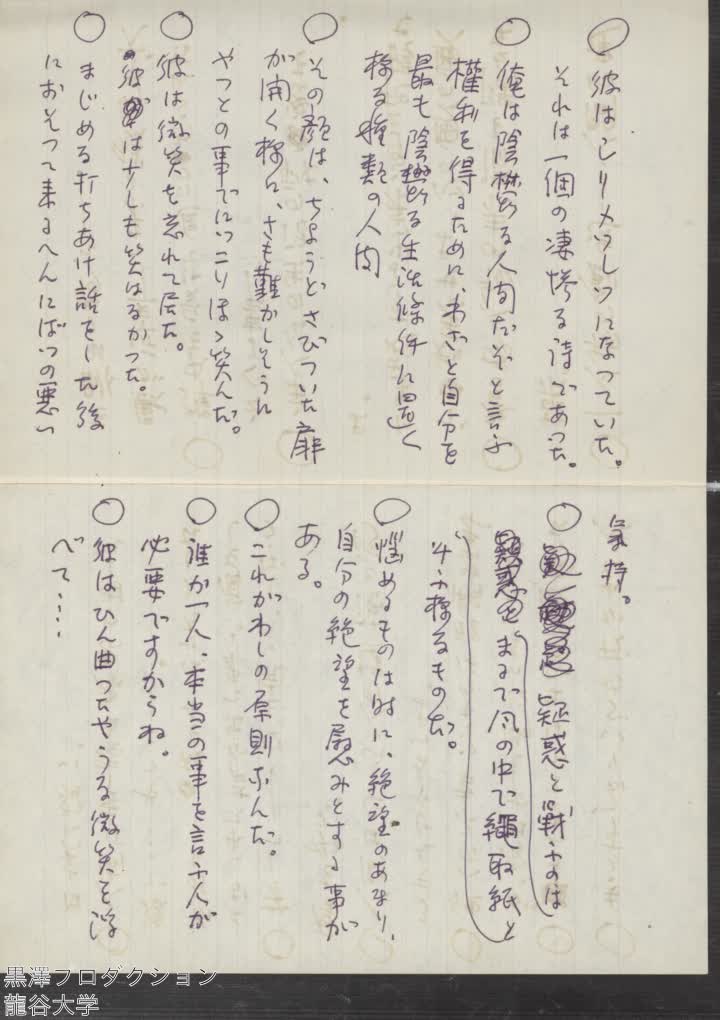 ○彼はしリメツレツになつていた。
それは一個の凄惨なる詩であつた。
○俺は陰欝なる人間だぞと言ふ
權利を得るために、わざと自分を
最も陰欝なる生活條件に置く
様な種類の人間
○その顔は、ちようどさびついた扉
が開く様に、さも難かしそうに
やつとの事でにつこりほゝ笑んだ。
○彼は微笑を忘れて居た。
彼は少しも笑はなかつた。
○まじめな打ちあけ話をした後
におそつて来るへんにばつの悪い
気持。
○疑惑と戦ふのは
まるで風の中で蠅取紙と
斗ふ様なものだ。
○悩めるものは時に、絶望のあまり、
自分の絶望を慰みとする事が
ある。
○これがわしの原則なんだ。
○誰か一人、本当の事を言ふ人が
必要ですからね。
○彼はひん曲つたやうな微笑を浮
べて‥‥
黒澤プロダクション
龍谷大学